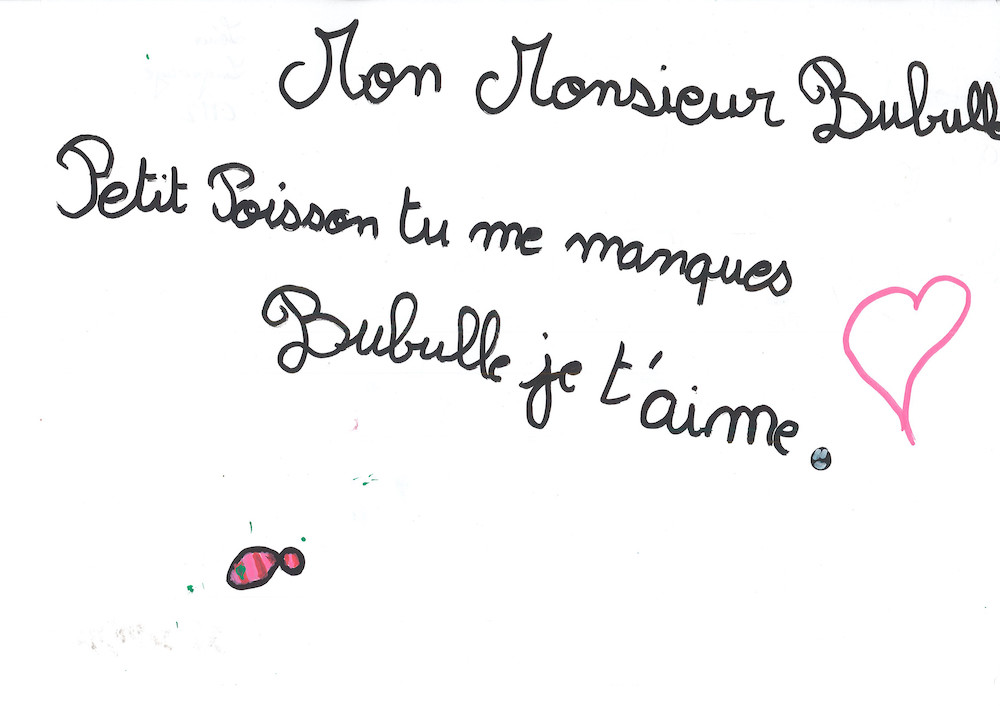 Mon Monsieur Bubulle
Petit Poisson tu me manques
Bubulle je t'aime.